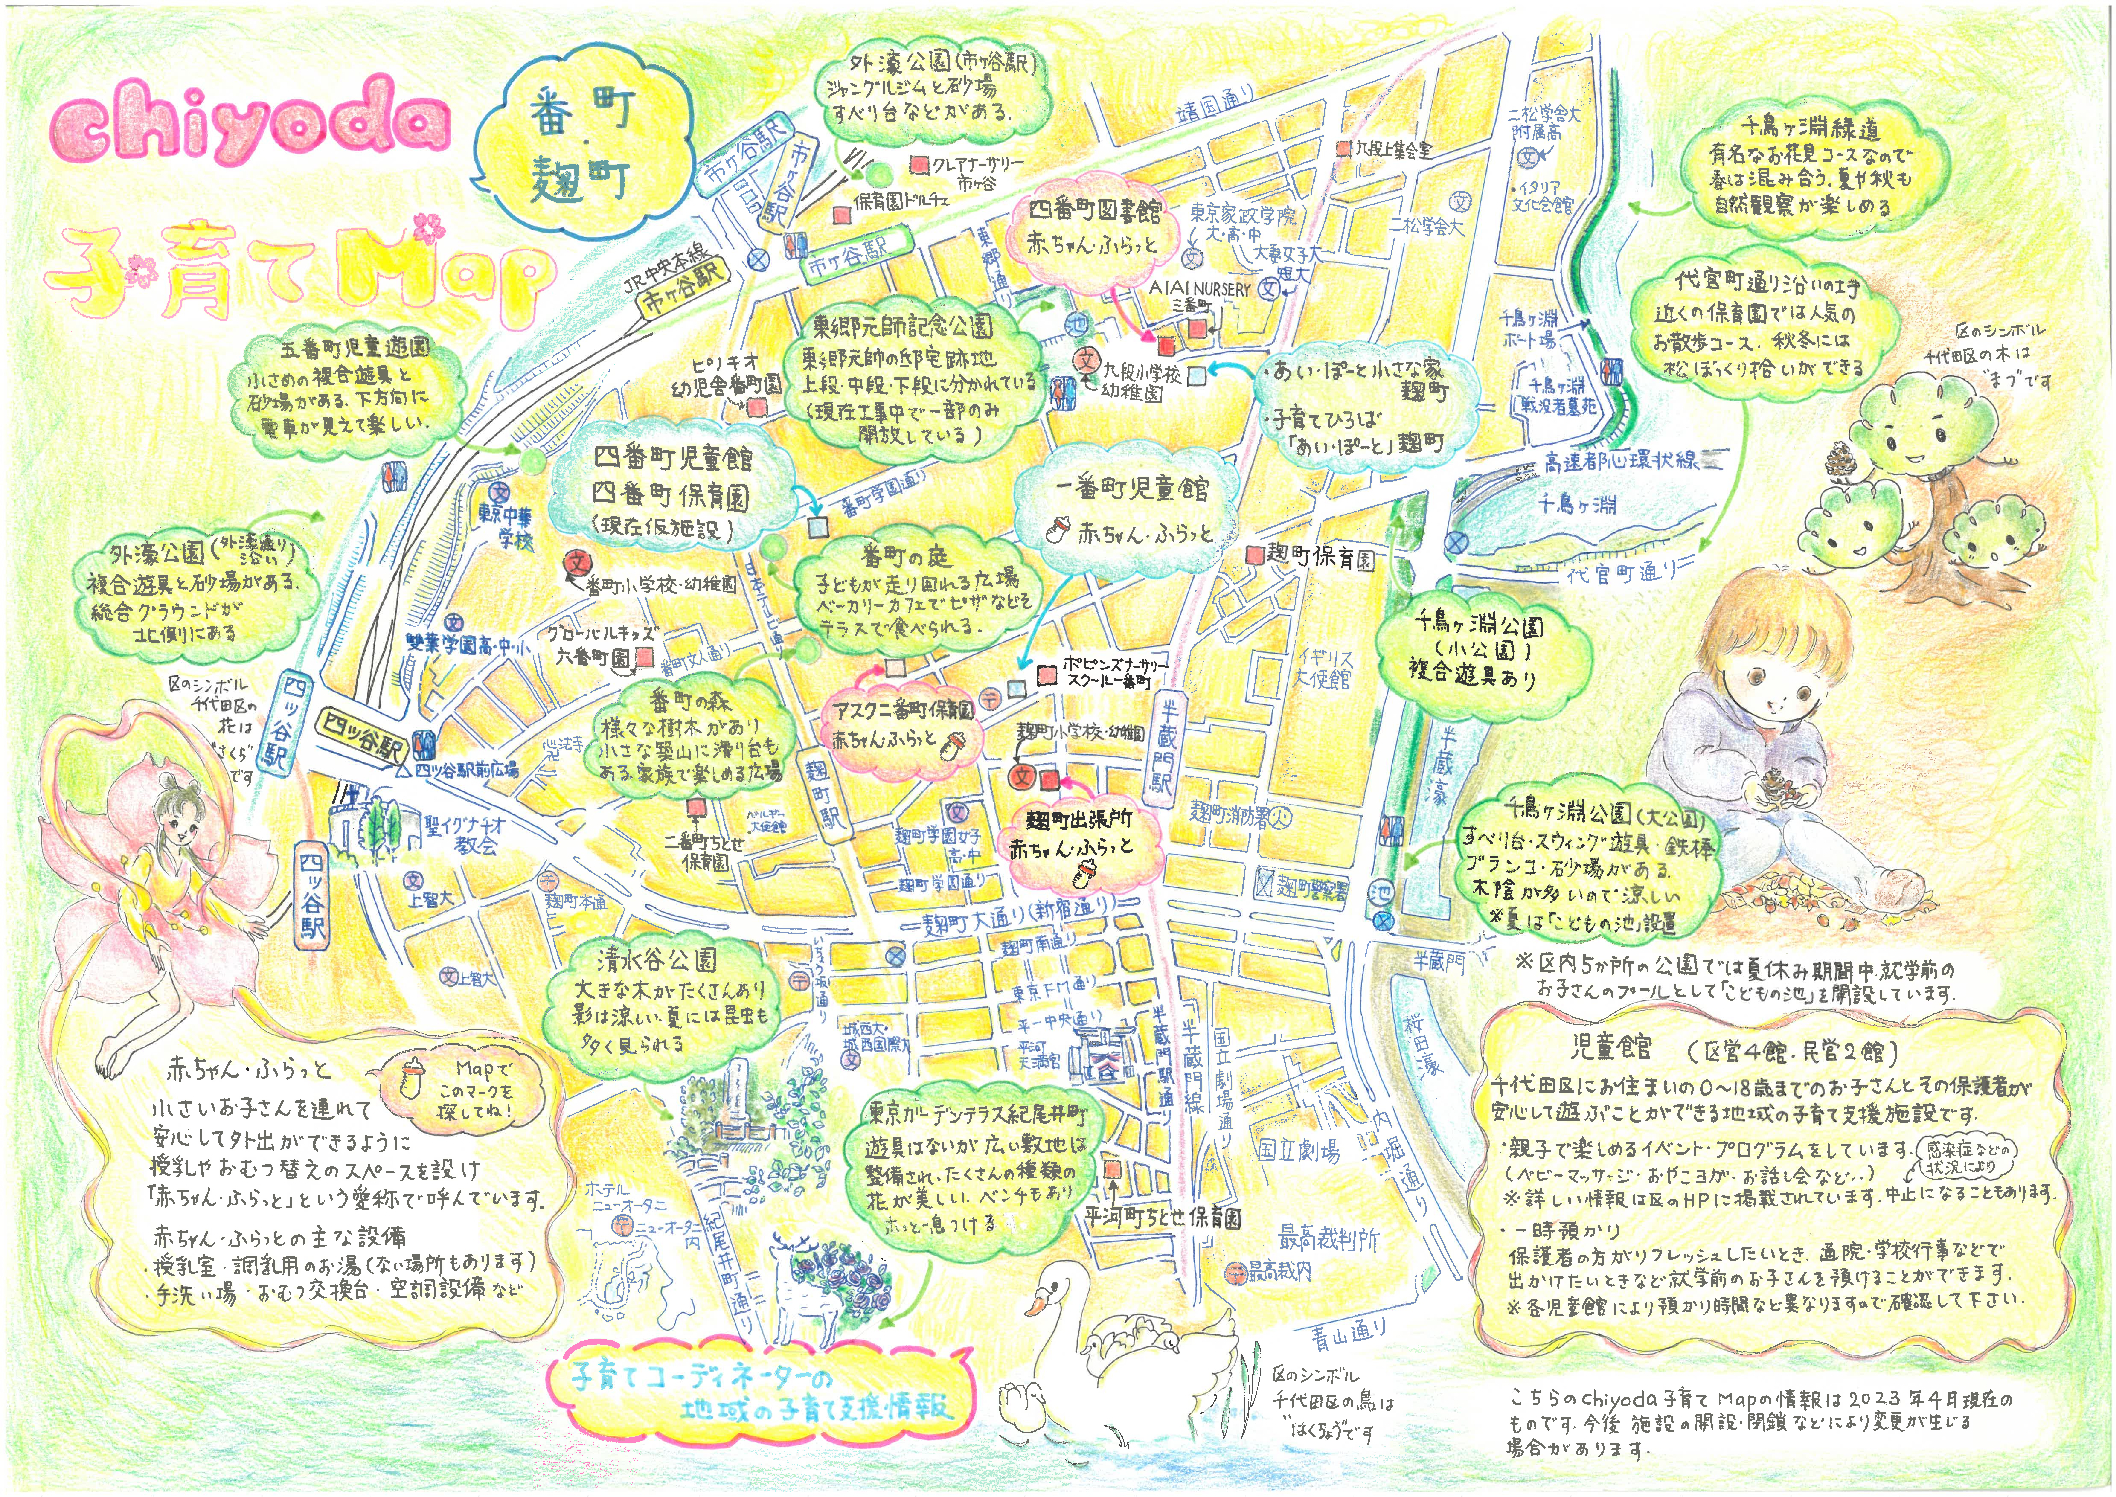 chiyoda
子育てMap
番町
・
麹町
外濠公園(市ヶ谷駅)
ジャングルジムと砂場
すべり台などがある.
クレアナーサリー
市ヶ谷
保育園ドルチェ
市ヶ谷駅
市ヶ谷駅
市ヶ谷駅
JR中央本線
市ヶ谷駅
靖国通り
東郷通り
四番町図書館
赤ちゃん・ふらっと
東京家政学院
大・高・中
大妻女子大
短大
AIAI NURSERY
三番町
九段上集会室
二松学舎大
附属高
・イタリア
文化会館
二松学舎大
千鳥ヶ淵緑道
有名なお花見コースなので
春は混み合う.夏や秋も
自然観察が楽しめる
代官町通り沿いの土手
近くの保育園では人気の
お散歩コース. 秋冬には
松ぼっくり拾いができる
区のシンボル
千代田区の木は
"まつ"です
五番町児童遊園
小さめの複合遊具と
砂場がある. 下方向に
電車が見えて楽しい.
ピノキオ
幼児舎番町園
東郷元師記念公園
東郷元帥の邸宅跡地
上段・中段・下段に分かれている
(現在工事中で一部のみ
開放している)
池
九段小学校
幼稚園
・あい・ぽーと小さな家
麹町
・子育てひろば
「あい・ぽーと」麹町
千鳥ヶ淵
ボート場
千鳥ヶ淵
戦没者墓苑
高速都心環状線
千鳥ヶ淵
代官町通り
四番町児童館
四番町保育園
(現在仮施設)
番町学園通り
一番町児童館
赤ちゃん・ふらっと
東京中華
学校
番町小学校・幼稚園
外濠公園(外濠通り沿い)
複合遊具と砂場がある.
総合グラウンドが
北側にある
番町の庭
子どもが走り回れる広場
ベーカリーカフェでピザなどを
テラスで食べられる.
麹町保育園
千鳥ヶ淵公園
(小公園)
複合遊具あり
雙葉学園高・中・小
グローバルキッズ
六番町園
番町文人通り
番町の森
様々な樹木があり
小さな築山に滑り台も
ある.家族で楽しめる広場
アスク二番町保育園
赤ちゃんふらっと
ポピンズナーサリー
スクール一番町
イギリス
大使館
麹町小学校・幼稚園
半蔵門駅
半蔵濠
区のシンボル
千代田区の
花は
"さくら"
です
四ッ谷駅
四ッ谷駅
四ッ谷駅
四ッ谷駅前広場
心法寺
聖イグナチオ
教会
二番町ちとせ
保育園
ベルギー
大使館
麹町駅
麹町学園女子
高・中
麹町学園通り
麹町出張所
赤ちゃん・ふらっと
麹町消防署
麹町警察署
池
千鳥ヶ淵公園(大公園)
すべり台・スウィング遊具・鉄棒
ブランコ・砂場がある.
木陰が多いので涼しい
※夏は「こどもの池」設置
上智大
上智大
麹町本通
麹町大通り(新宿通り)
麹町南通り
東京FM通り
平河中央通り
平河
天満宮
清水谷公園
大きな木がたくさんあり
影は涼しい.夏には昆虫も
多く見られる
城西大・
城西国際大
半蔵門駅通り
半蔵門線
国立劇場通り
国立劇場
内堀通り
半蔵門
桜田濠
※区内5か所の公園では夏休み期間中.就学前の
お子さんのプールとして「こどもの池」を開設しています.
東京ガーデンテラス紀尾井町
遊具はないが広い敷地は
整備され、たくさんの種類の
花が美しい. ベンチもあり
ホッと一息つける
平河町ちとせ保育園
ホテル
ニューオータニ
ニューオータニ
内
紀尾井町通り
最高裁判所
最高裁内
青山通り
赤ちゃん・ふらっと
Mapで
このマークを
探してね!
小さいお子さんを連れて
安心して外出ができるように
授乳やおむつ替えのスペースを設け
「赤ちゃん・ふらっと」という愛称で呼んでいます.
赤ちゃん・ふらっとの主な設備
・授乳室・調乳用のお湯(ない場所もあります)
・手洗い場・おむつ交換台・空調設備など
児童館 (区営4館・民営2館)
千代田区にお住まいの0〜18歳までのお子さんとその保護者が
安心して遊ぶことができる地域の子育て支援施設です.
・親子で楽しめるイベント・プログラムをしています.
(ベビーマッサージ・おやこヨガ・お話し会など..)
感染症などの
状況により
※詳しい情報は区のHPに掲載されています.中止になることもあります.
・一時預かり
保護者の方がリフレッシュしたいとき、通院・学校行事などで
出かけたいときなど就学前のお子さんを預けることができます.
※各児童館により預かり時間など異なりますので確認して下さい.
子育てコーディネーターの
地域の子育て支援情報
区のシンボル
千代田区の鳥は
"はくちょう"です
こちらのchiyoda子育てMapの情報は2023年4月現在の
ものです.今後 施設の開設・閉鎖などにより変更が生じる
場合があります.